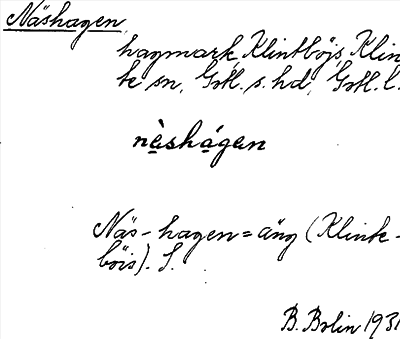 Näshagen,
hagmark, Klintböjs, Klin
te sn, Gotl. s. hd, Gotl. l.
nä̀shágen
Näs-hagen = äng (Klinte-
böis). S.
B. Bolin 1931